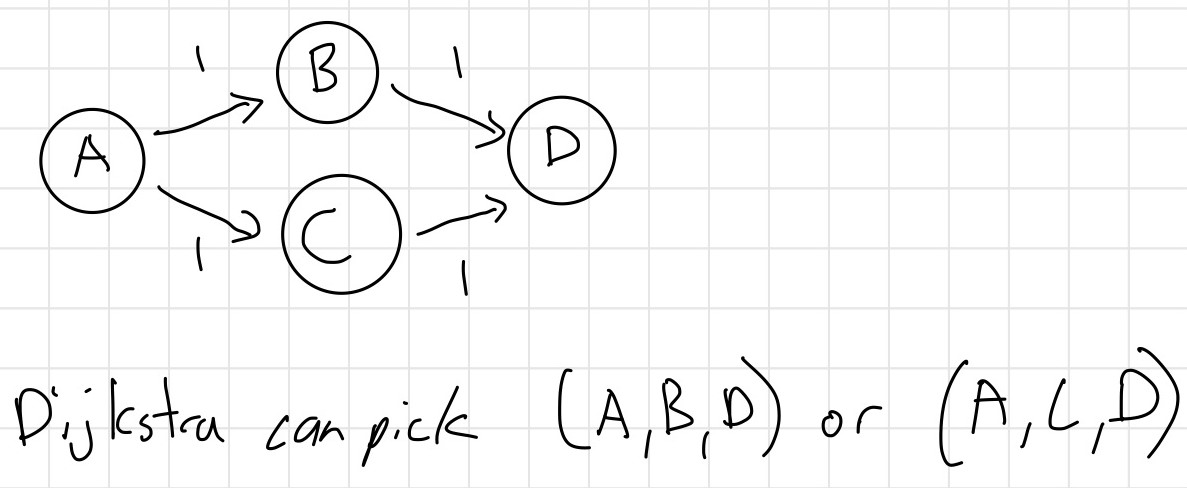 1
B
1
A
D
C
1
1
Dijkstra can pick (A,B,D) or (A,C,D)